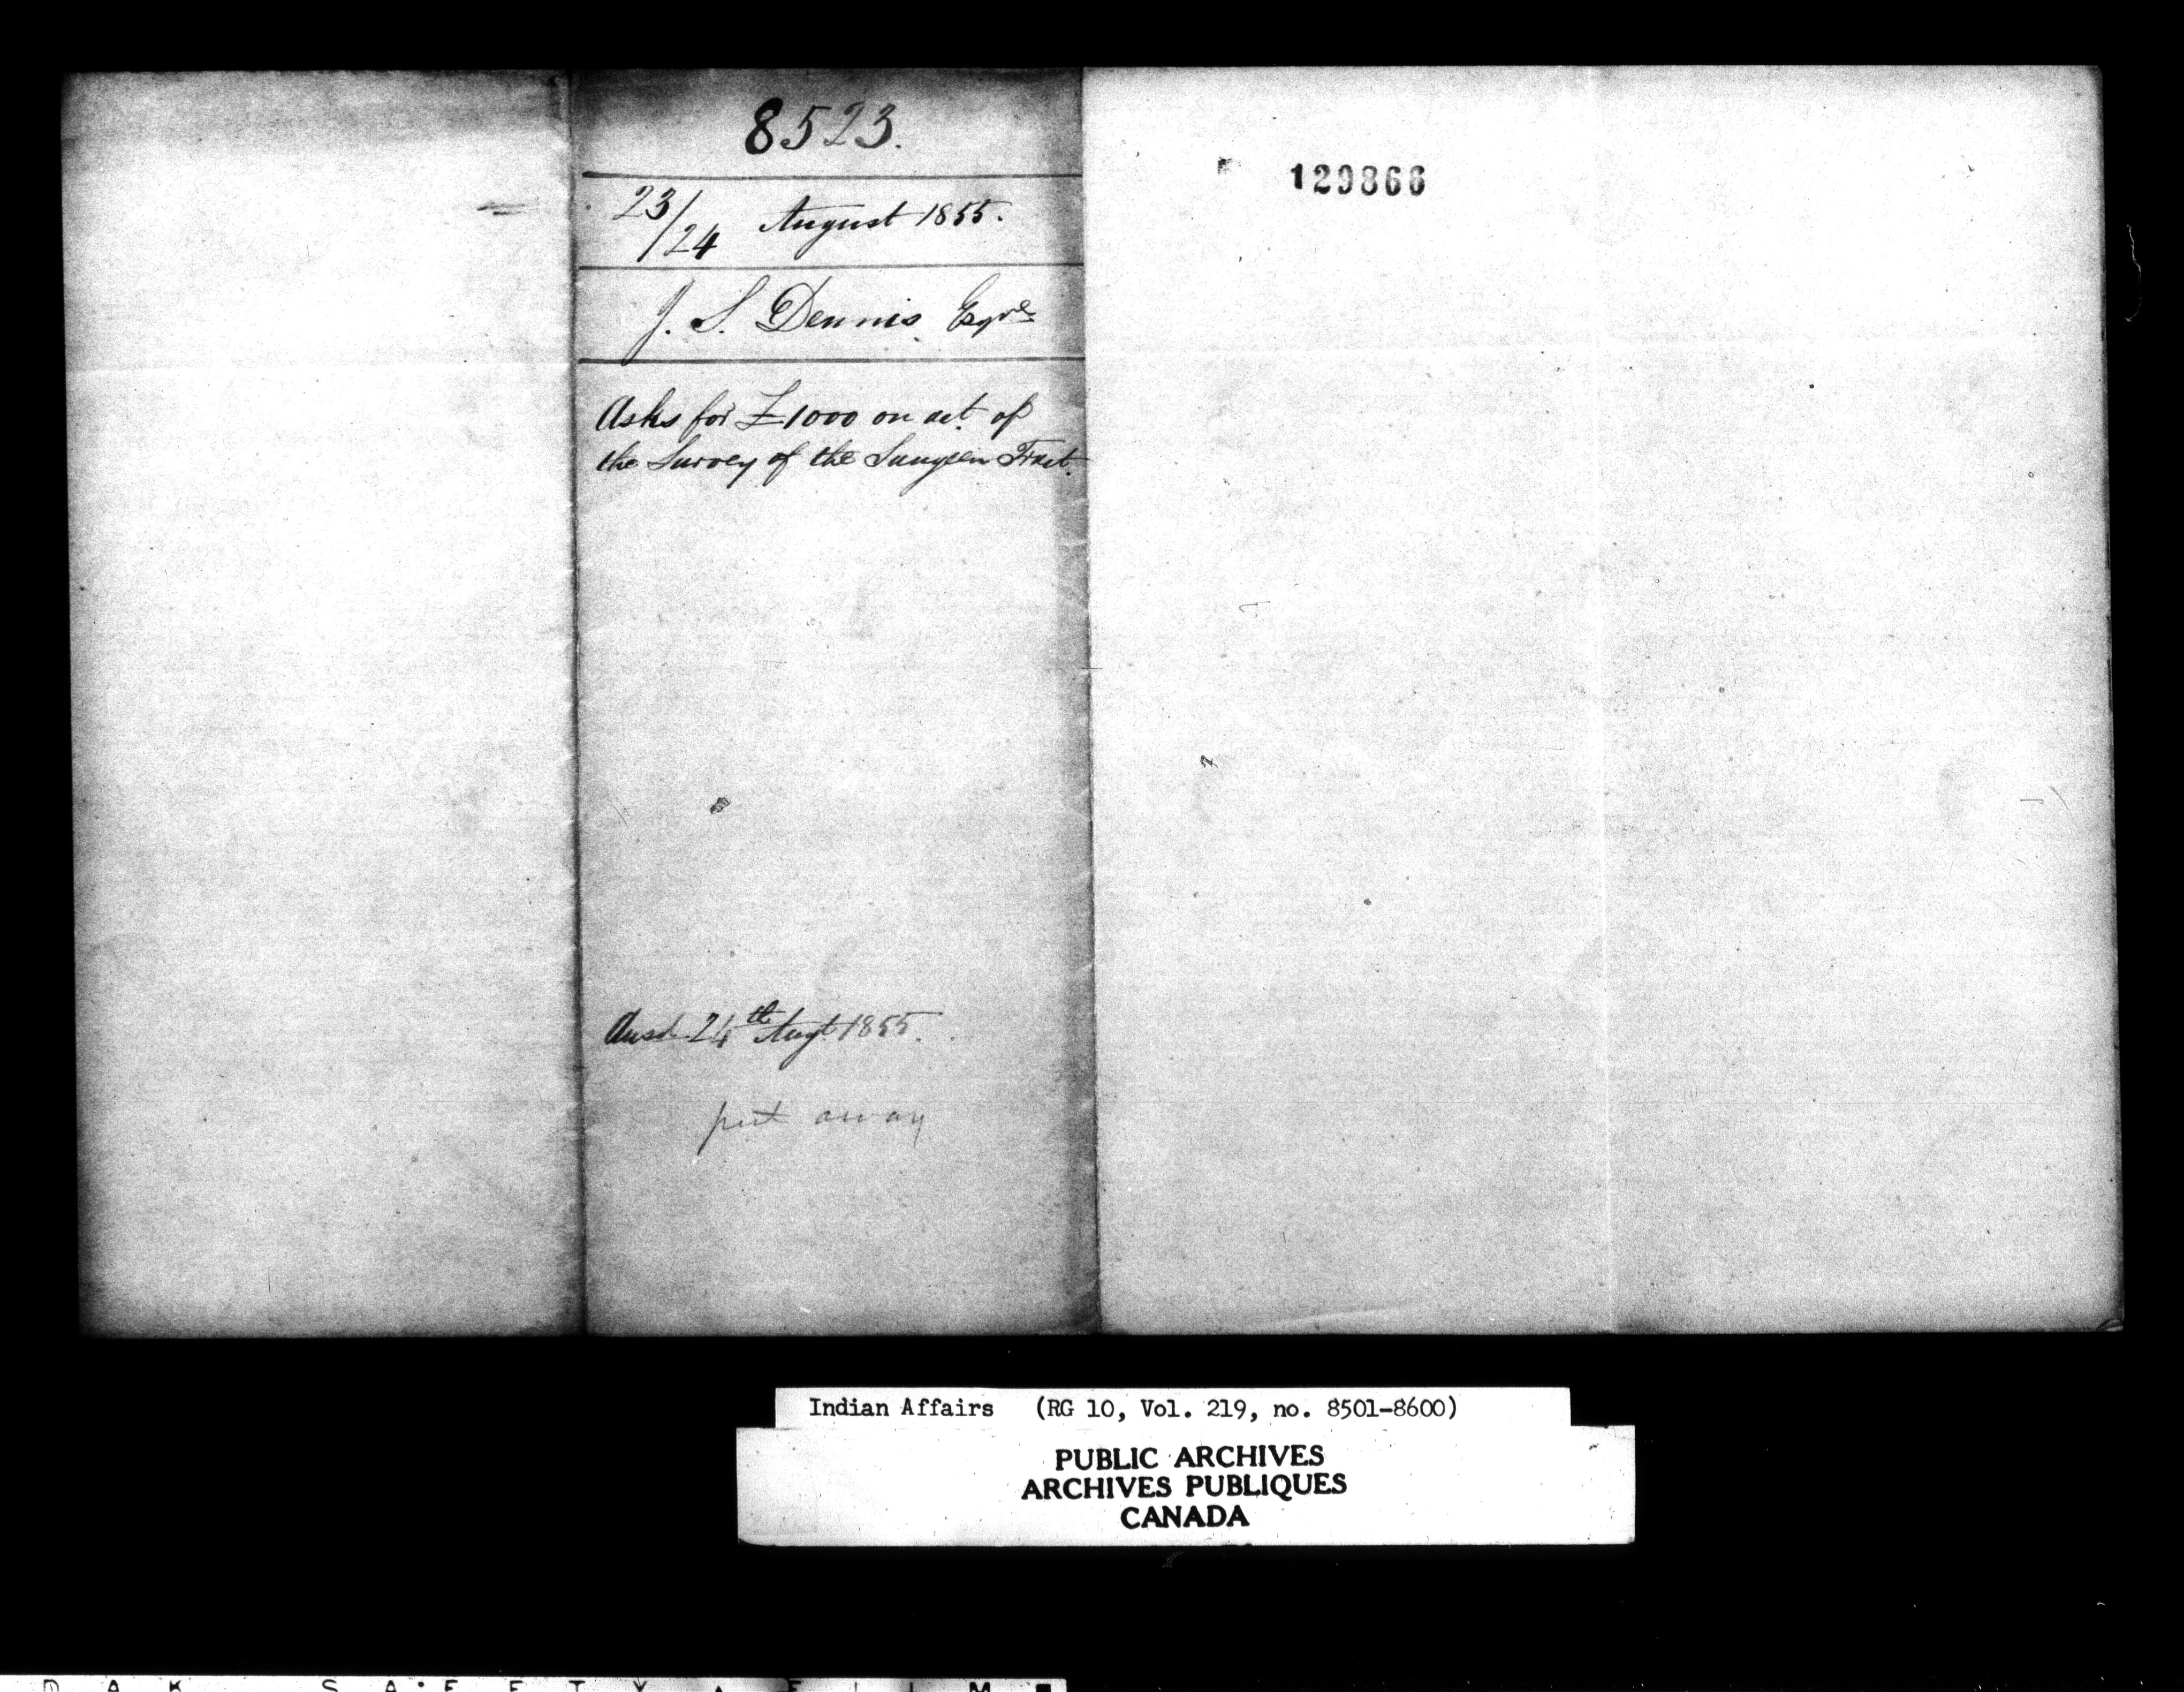 8523.
23/24 August 1855.
J. S. Dennis Esqre
Asks for £1000 on act. of
the Survey of the Saugeen Tract.
Ansd 24th Augt 1855.
put away
129866
Indian Affairs (RG 10, Vol. 219, no. 8501-8600)
PUBLIC ARCHIVES
ARCHIVES PUBLIQUES
CANADA
DAK SAFETY FILM